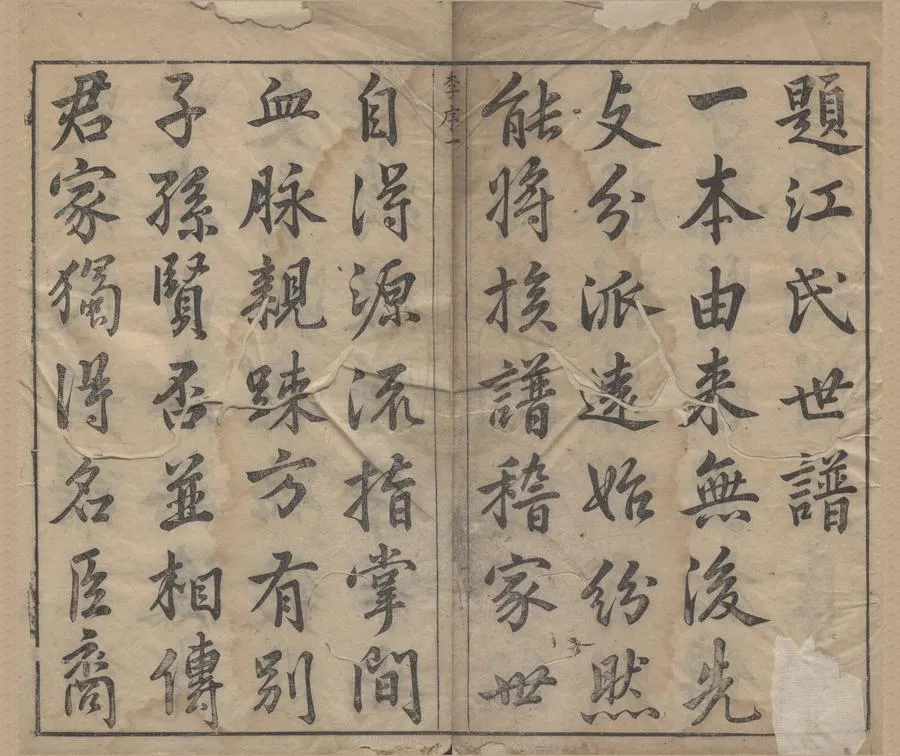 題江氏世譜
一本由来無後先
支分派遠始紛然
能將族譜稽家世
自得源流指掌間
李序一
血脉親踈方有别
子孫賢否並相傳
君家獨得名臣裔